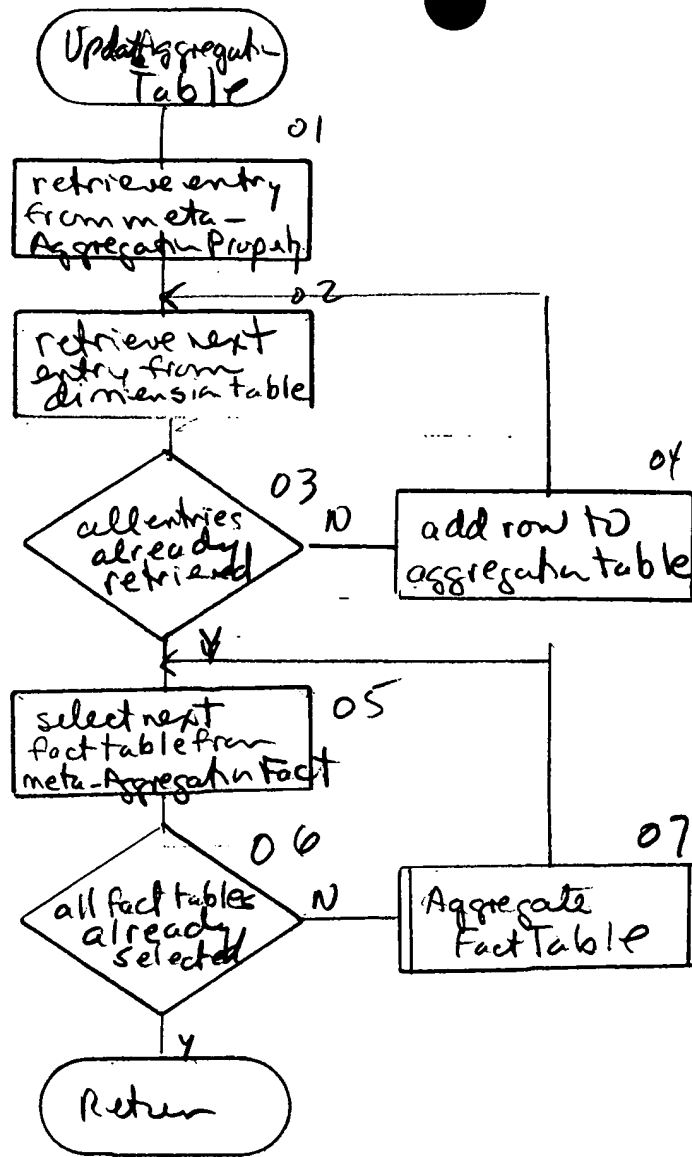 UpdateAggregation
Table
01
retrieve entry
from meta-
Aggregation Property
02
retrieve next
entry from
dimension table
03
all entries
already
retrieved
N
04
add row to
aggregation table
Y
05
select next
fact table from
meta-Aggregation Fact
06
all fact tables
already
selected
N
07
Aggregate
Fact Table
Y
Return